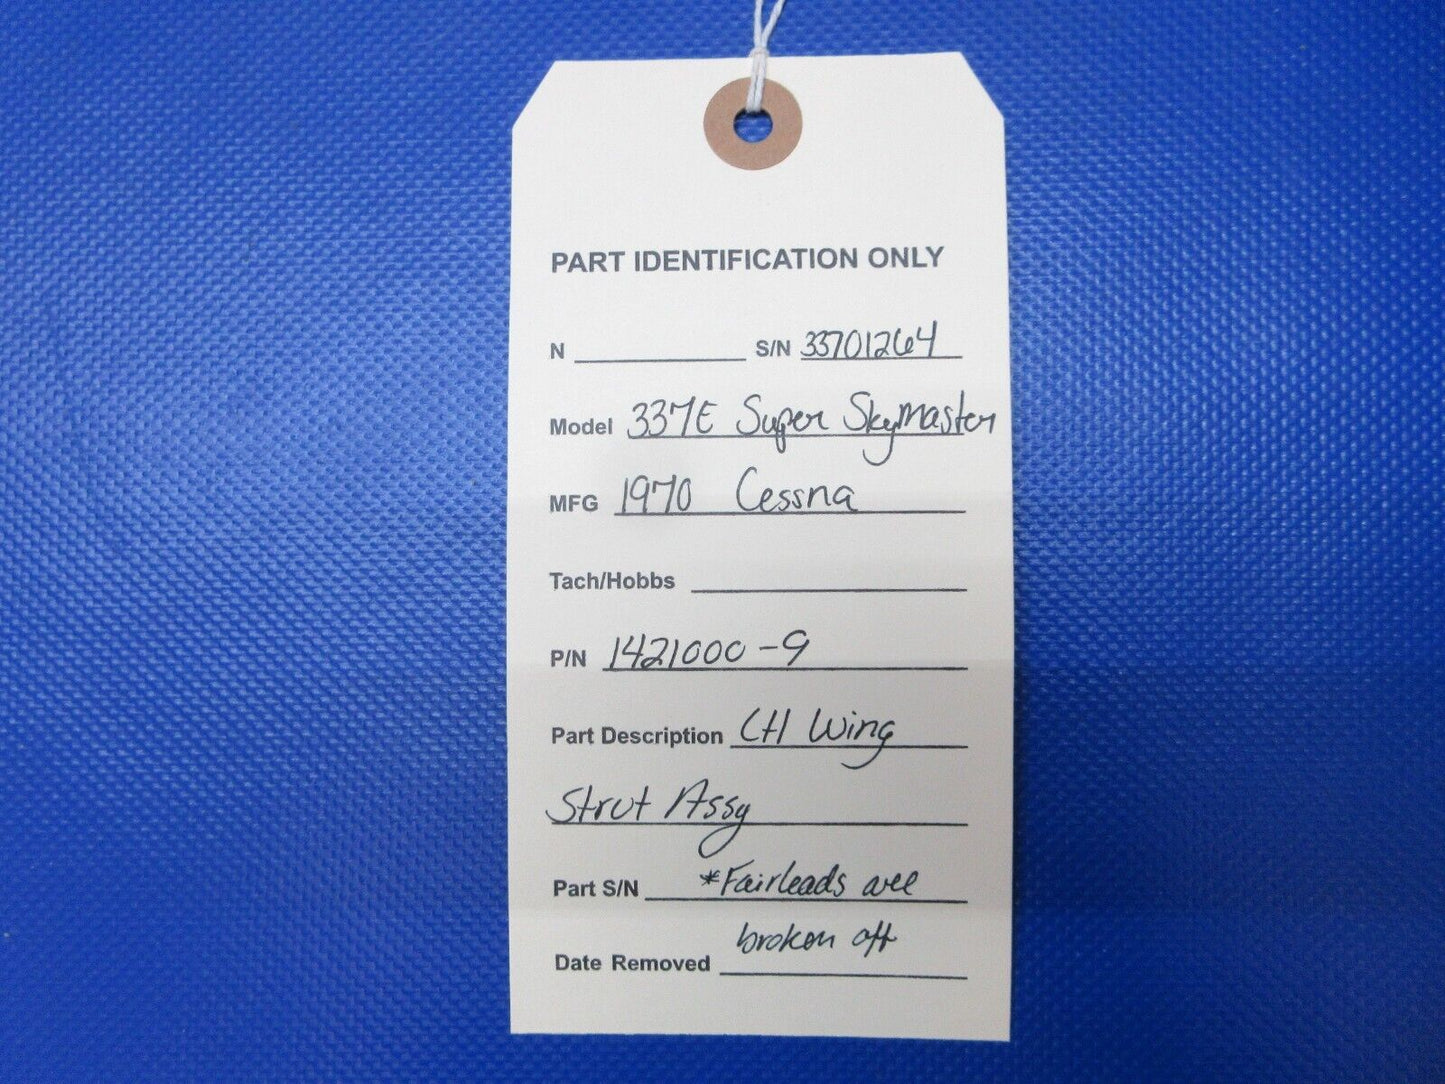 PART IDENTIFICATION ONLY
N S/N 33701264
Model 337E Super Skymaster
MFG 1970 Cessna
Tach/Hobbs
P/N 1421000-9
Part Description LH Wing
Strut Assy
Part S/N *Fairleads are
broken off
Date Removed